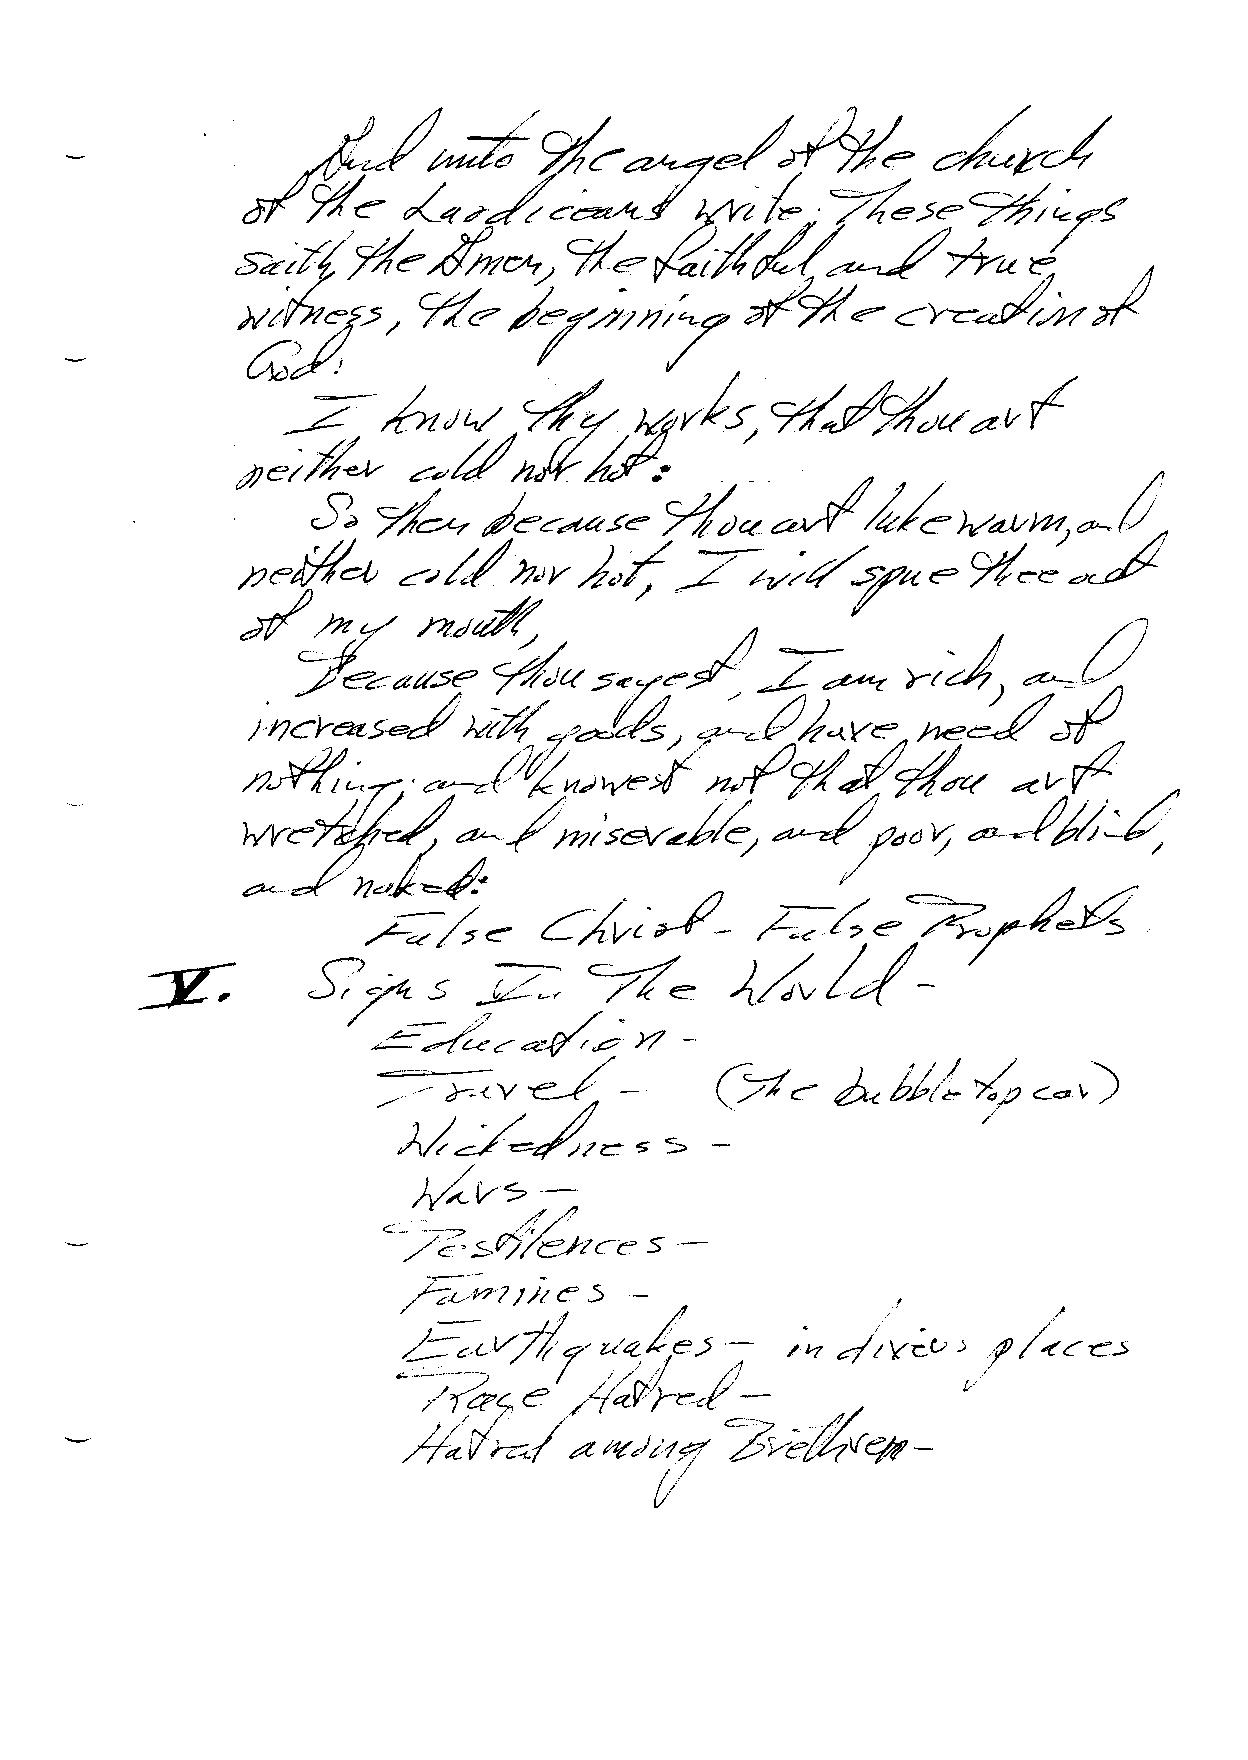 And unto the angel of the church
of the Laodiceans write; These things
saith the Amen, the faithful and true
witness, the beginning of the creation of
God:
I know thy works, that thou art
neither cold nor hot:
So then because thou art lukewarm, and
neither cold nor hot, I will spue thee out
of my mouth,
Because thou sayest, I am rich, and
increased with goods, and have need of
nothing; and knowest not that thou art
wretched, and miserable, and poor, and blind,
and naked:
False Christ - False Prophets
V. Signs In The World -
Education -
Travel - (The bubble top car)
Wickedness -
Wars -
Pestilences -
Famines -
Earthquakes - in divers places
Race Hatred -
Hatred among Brethren -